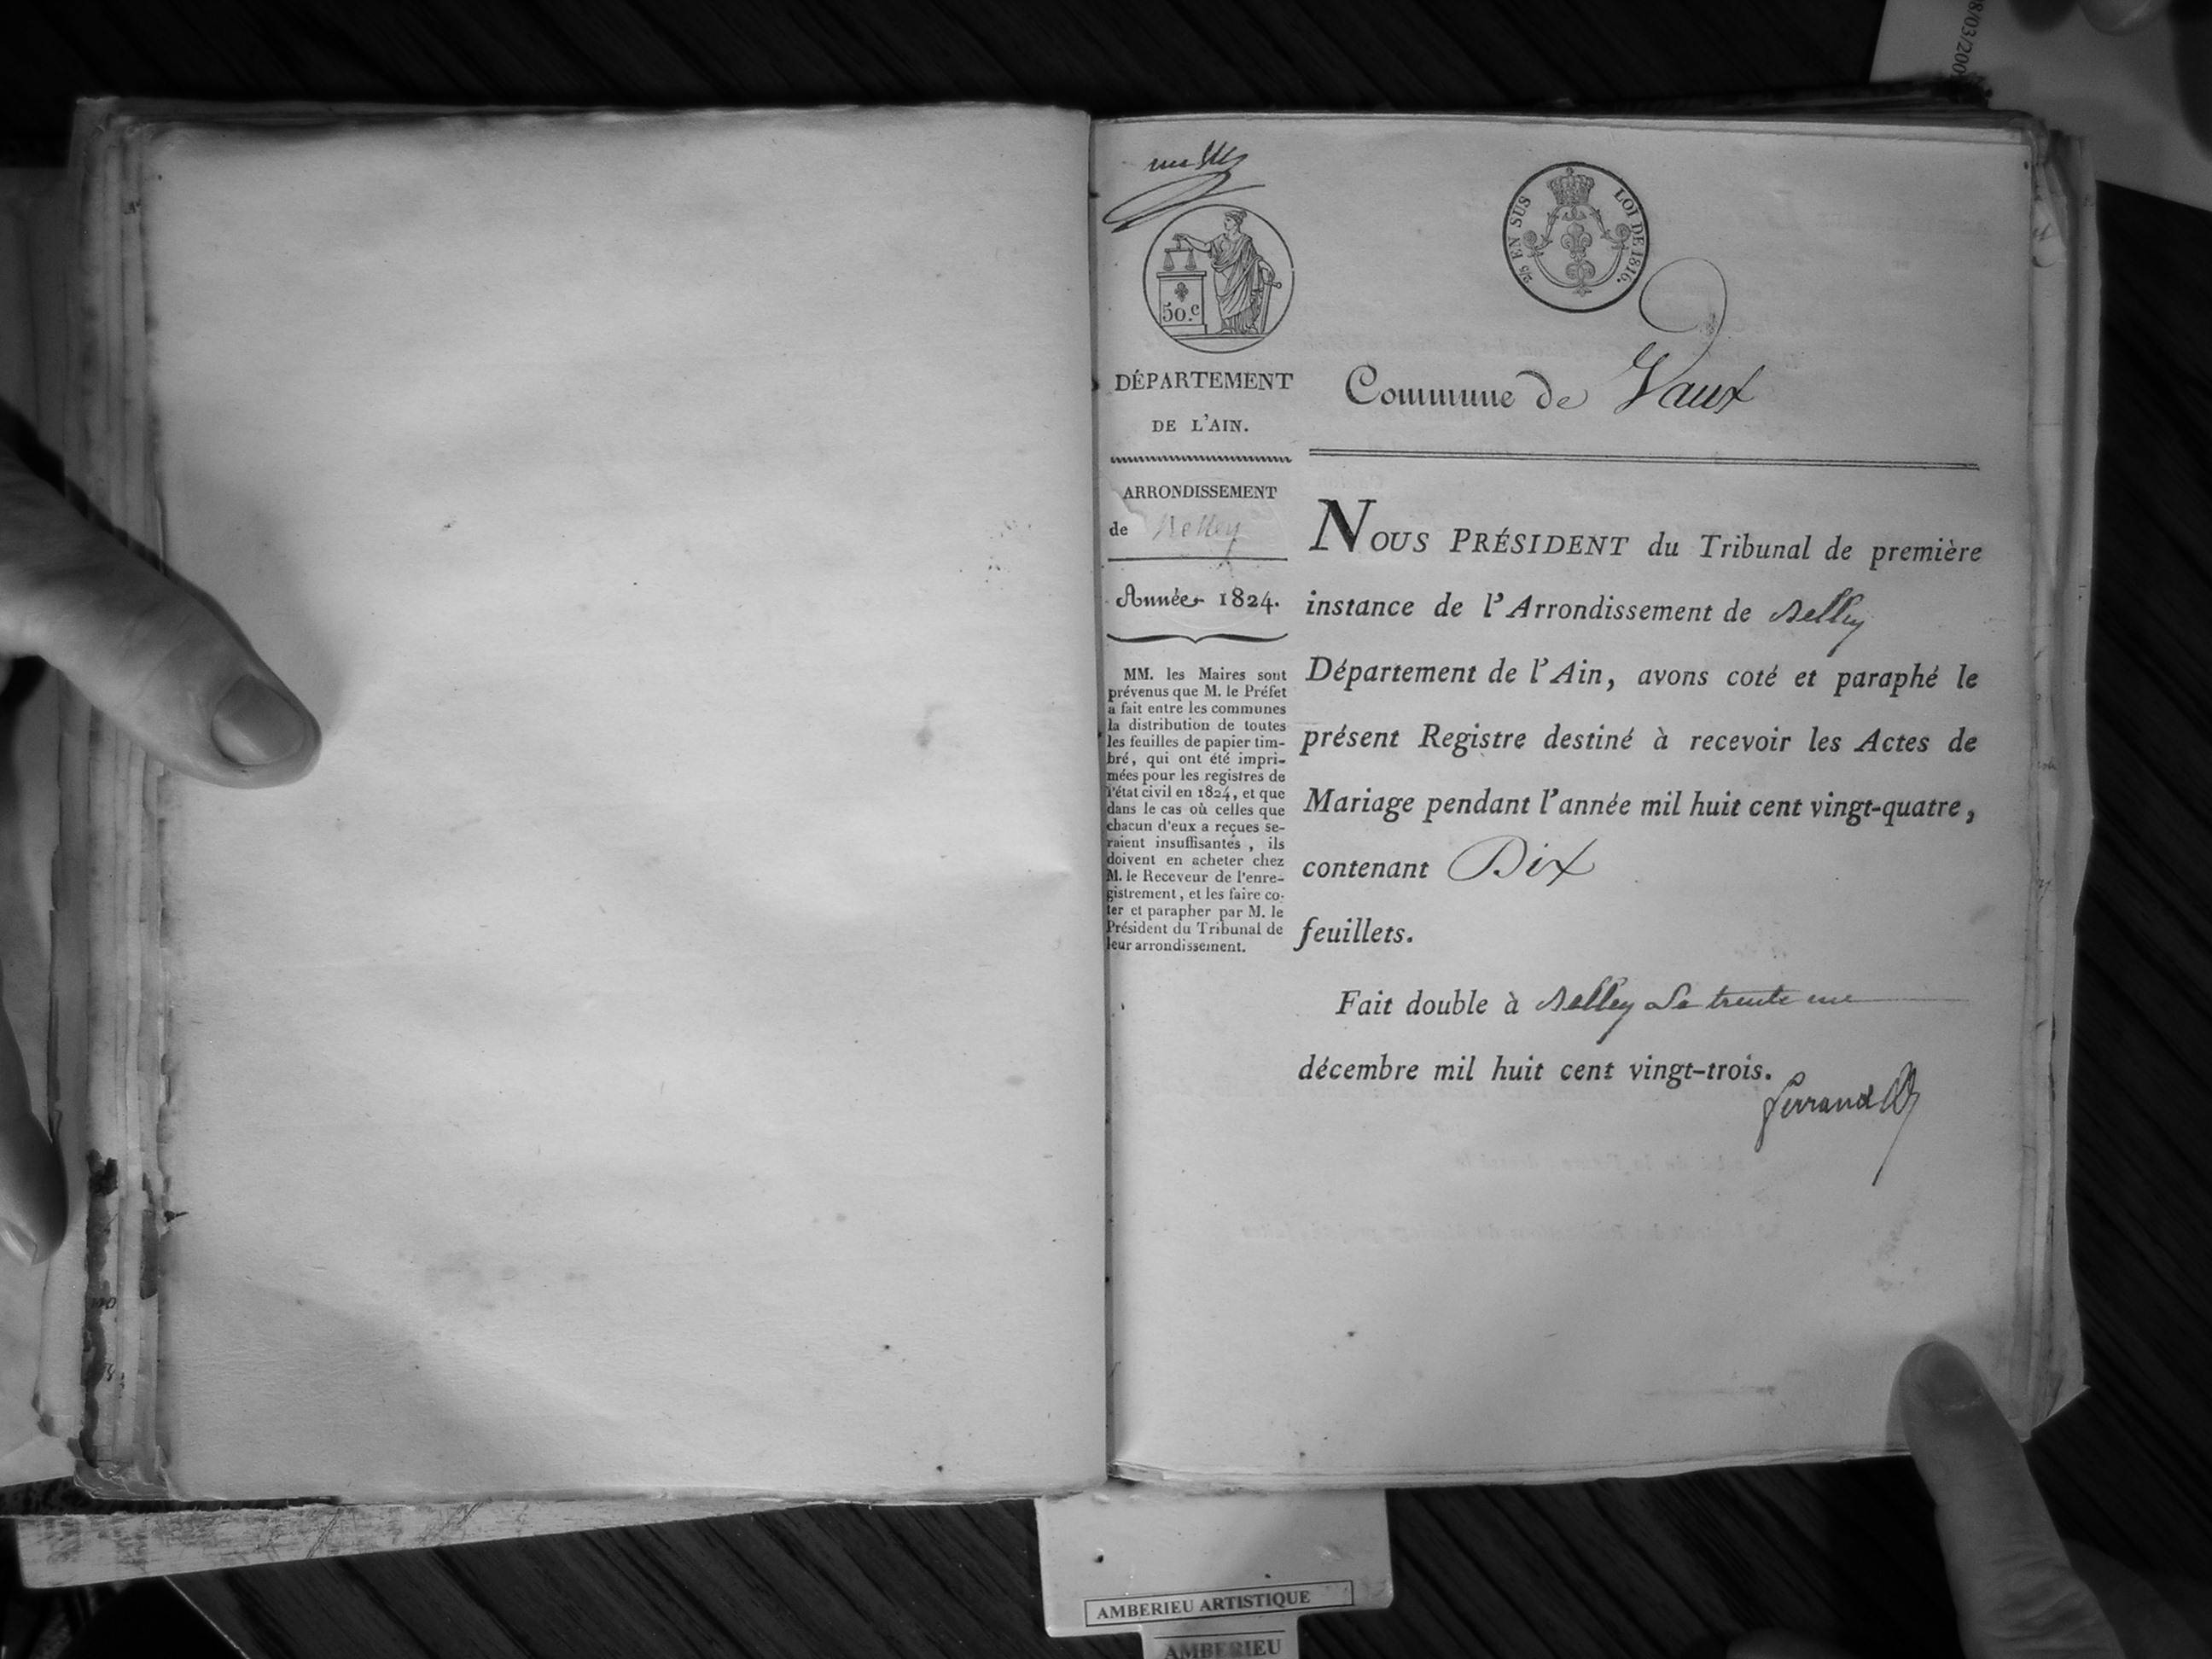 8/03/200
2/5 EN SUS
LOI DE 1816.
50.c
DÉPARTEMENT
DE L'AIN.
ARRONDISSEMENT
de Belley
Année 1824.
MM. les Maires sont
prévenus que M. le Préfet
a fait entre les communes
la distribution de toutes
les feuilles de papier tim-
bré, qui ont été impri-
mées pour les registres de
l'état civil en 1824, et que
dans le cas où celles que
chacun d'eux a reçues se-
raient insuffisantes, ils
doivent en acheter chez
M. le Receveur de l'enre-
gistrement, et les faire co-
ter et parapher par M. le
Président du Tribunal de
leur arrondissement.
Commune de Vaux
NOUS PRÉSIDENT du Tribunal de première
instance de l'Arrondissement de Belley
Département de l'Ain, avons coté et paraphé le
présent Registre destiné à recevoir les Actes de
Mariage pendant l'année mil huit cent vingt-quatre,
contenant Dix
feuillets.
Fait double à Belley Le trente une
décembre mil huit cent vingt-trois.
Ferrand
AMBERIEU ARTISTIQUE
AMBERIEU